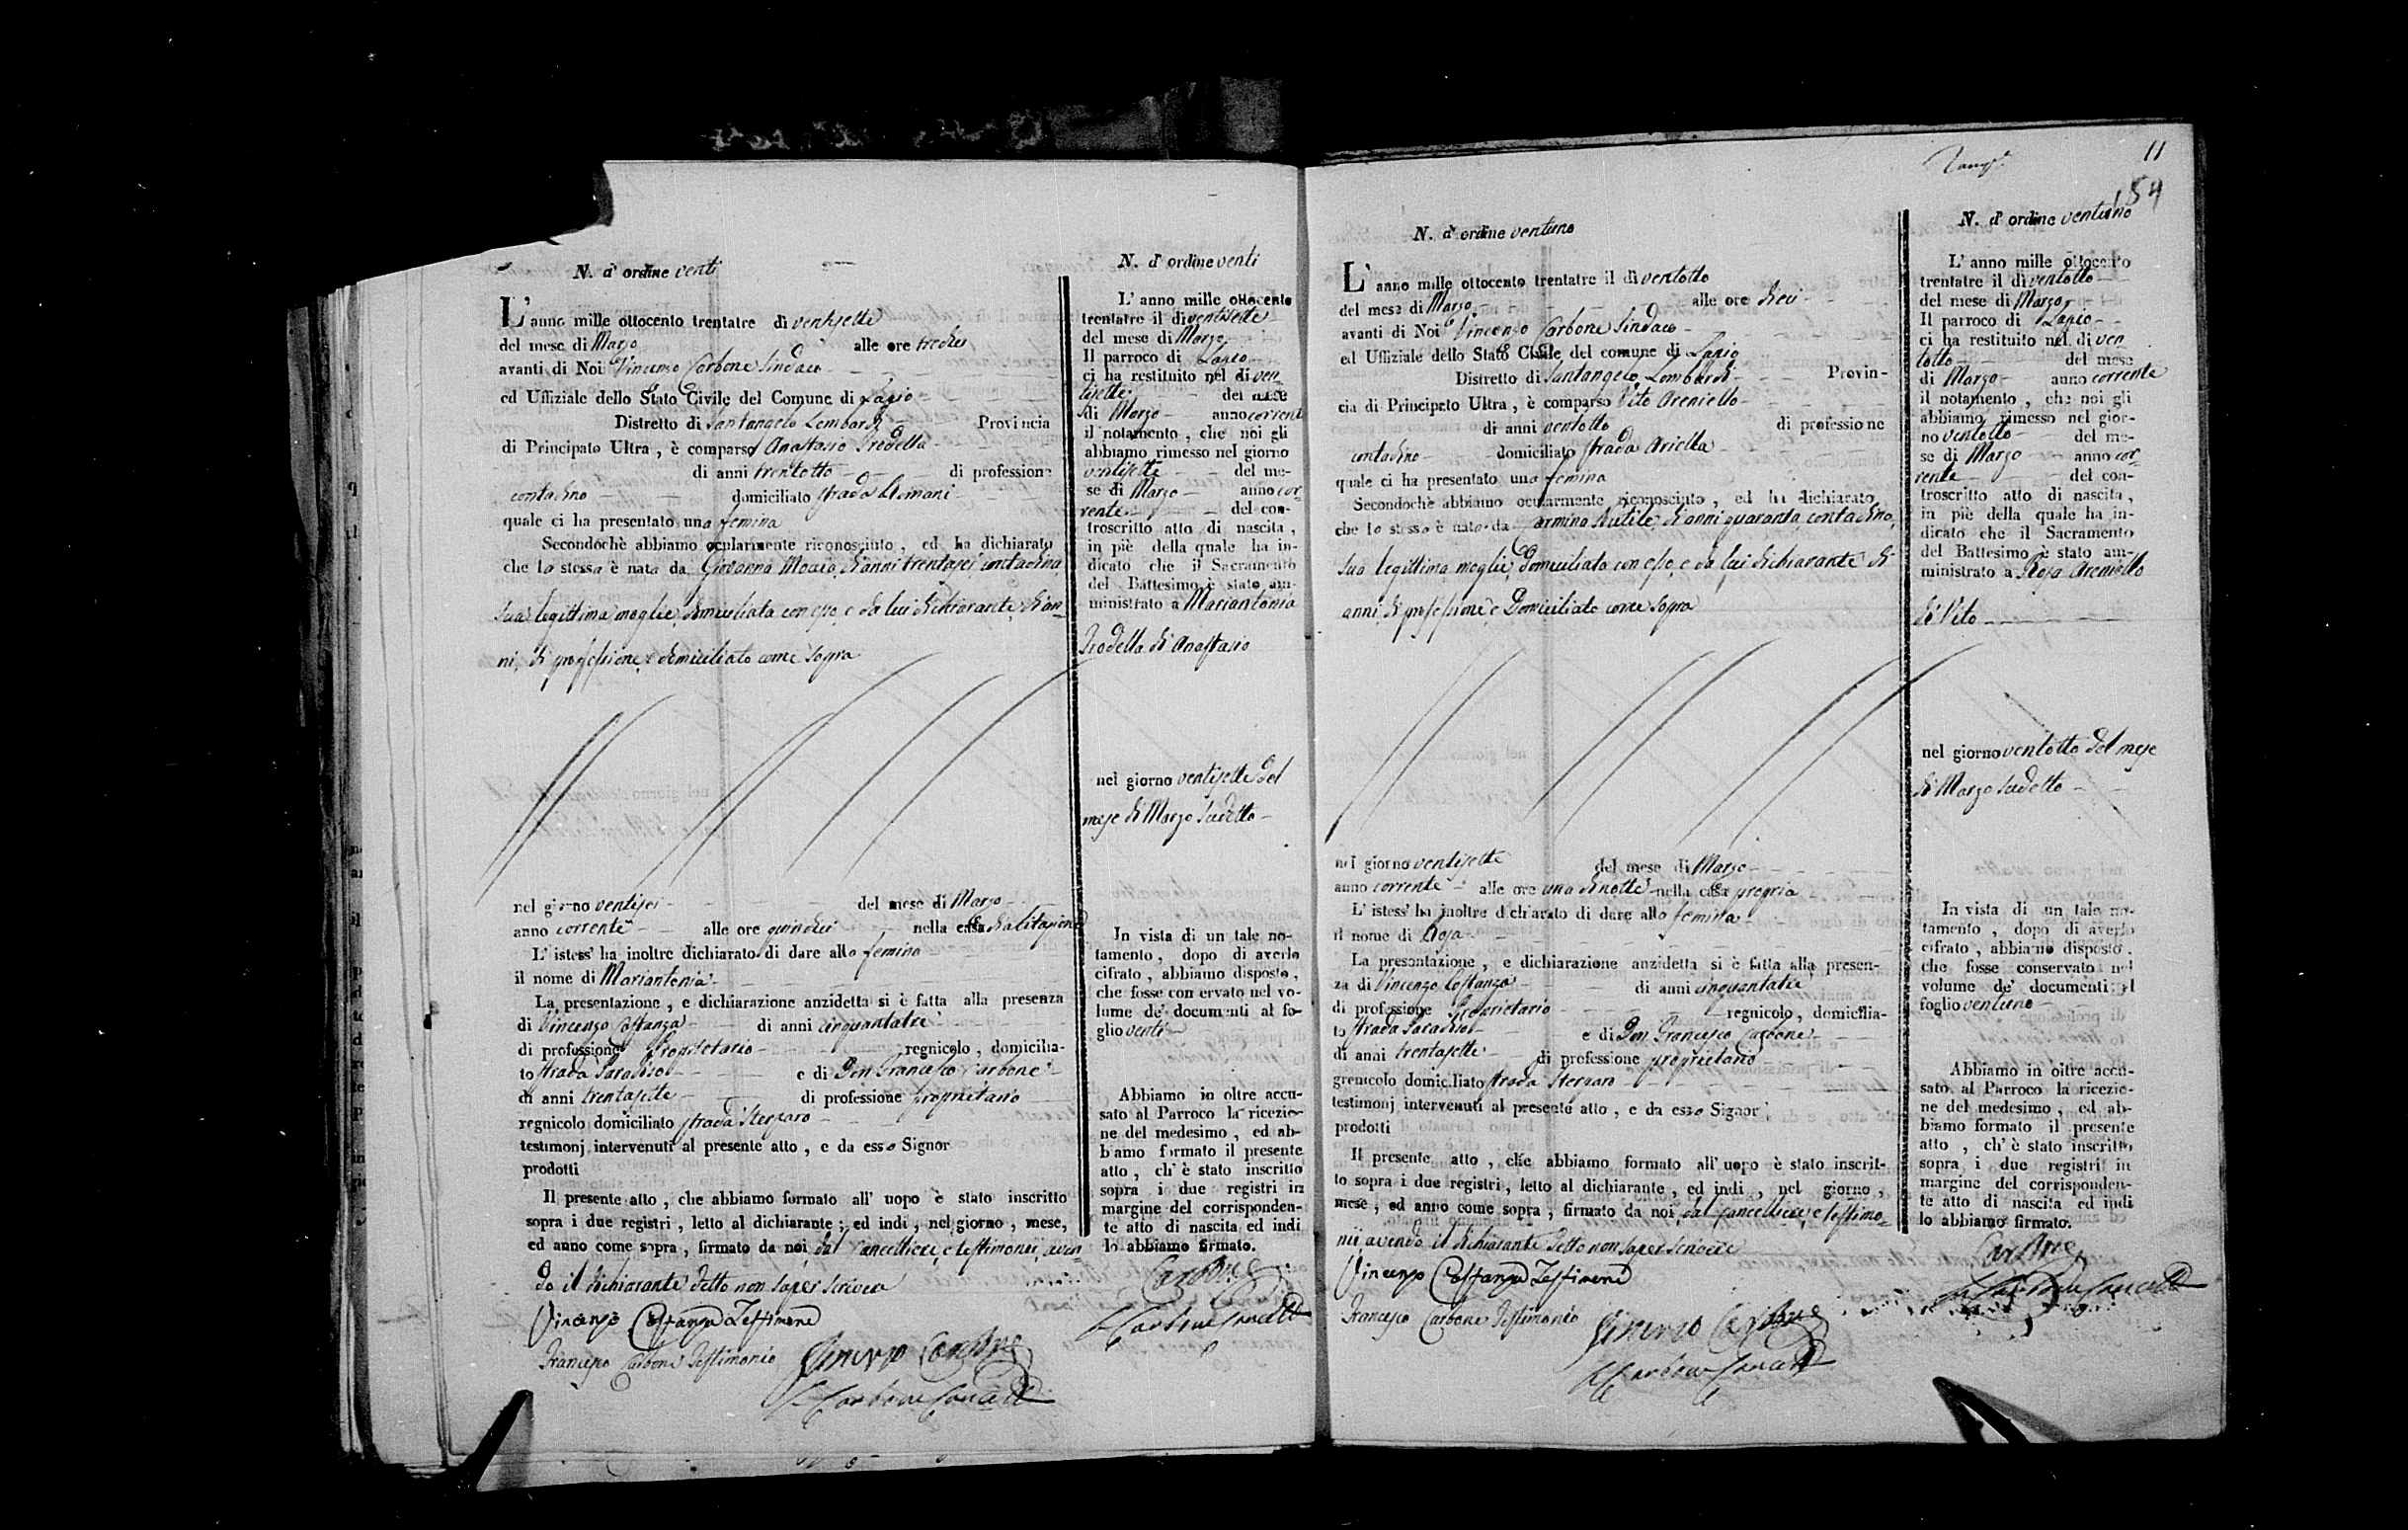 N. d' ordine venti
L' anno mille ottocento trentatre di ventisette
del mese di Marzo alle ore tredici
avanti di Noi Vincenzo Carbone Sindaco
ed Uffiziale dello Stato Civile del Comune di Lapio
Distretto di Santangelo Lombardi Provincia
di Principato Ultra , è comparso Anastasio Tredella
di anni trentotto di professione
contadino domiciliato strada
quale ci ha presentato una femina
Secondochè abbiamo ocularmente riconosciuto , ed ha dichiarato
che la stessa è nata da Giovanna di anni trentasei contadina
sua legittima moglie, domiciliata con esso, e da lui dichiarante di an-
ni, di professione, e domiciliato come sopra
nel giorno ventisei del mese di Marzo
anno corrente alle ore quindici nella casa d'abitazione
L' istess' ha inoltre dichiarato di dare alla femina
il nome di Mariantonia
La presentazione , e dichiarazione anzidetta si è fatta alla presenza
di Vincenzo Costanza di anni cinquantatre
di professione Proprietario regnicolo , domicilia-
to strada Paradiso e di Don Francesco Carbone
di anni trentasette di professione proprietario
regnicolo domiciliato strada Sterparo
testimonj intervenuti al presente atto , e da esso Signor
prodotti
Il presente atto , che abbiamo formato all' uopo è stato inscritto
sopra i due registri , letto al dichiarante ; ed indi , nel giorno , mese,
ed anno come sopra , firmato da noi, dal Cancelliere, e testimonii, aven
do il dichiarante detto non saper scrivere
Vincenzo Costanza Testimone
Francesco Carbone Testimonio
Vincenzo Carbone
Carbone Cancell
N. d' ordine venti
L' anno mille ottocento
trentatre il di ventisette
del mese di Marzo
Il parroco di Lapio
ci ha restituito nel di ven-
tisette del mese
di Marzo anno corrente
il notamento , che noi gli
abbiamo rimesso nel giorno
ventisette del me-
se di Marzo anno cor-
rente del con-
troscritto atto di nascita ,
in piè della quale ha in-
dicato che il Sacramento
del Battesimo è stato am-
ministrato a Mariantonia
Tredella di Anastasio
nel giorno ventisette del
mese di Marzo sudetto
In vista di un tale no-
tamento , dopo di averlo
cifrato , abbiamo disposto ,
che fosse conservato nel vo-
lume de' documenti al fo-
glio venti
Abbiamo in oltre accu-
sato al Parroco la ricezio-
ne del medesimo , ed ab-
biamo formato il presente
atto , ch' è stato inscritto
sopra i due registri in
margine del corrisponden-
te atto di nascita ed indi
lo abbiamo firmato.
Carbone
Carbone Cancell
11
154
N. d' ordine ventuno
L' anno mille ottocento trentatre il di ventotto
del mese di Marzo alle ore dieci
avanti di Noi Vincenzo Carbone Sindaco
ed Uffiziale dello Stato Civile del comune di Lapio
Distretto di Santangelo Lombardi Provin-
cia di Principato Ultra , è comparso Vito Areniello
di anni ventotto di professione
contadino domiciliato strada Ariella
quale ci ha presentato una femina
Secondochè abbiamo ocularmente riconosciuto , ed ha dichiarato
che la stessa è nata da Carmina di anni quaranta, contadina,
sua legittima moglie, domiciliata con esso, e da lui dichiarante di
anni, di professione, e domiciliato come sopra
nel giorno ventisette del mese di Marzo
anno corrente alle ore una di notte nella casa propria
L' istess' ha inoltre dichiarato di dare alla femina
il nome di Rosa
La presentazione , e dichiarazione anzidetta si è fatta alla presen-
za di Vincenzo Costanza di anni cinquantatre
di professione Proprietario regnicolo , domicilia-
to strada Paradiso e di Don Francesco Carbone
di anni trentasette di professione proprietario
gregnicolo domiciliato strada Sterparo
testimonj intervenuti al presente atto , e da esso Signor
prodotti
Il presente atto , che abbiamo formato all' uopo è stato inscrit-
to sopra i due registri , letto al dichiarante , ed indi , nel giorno ,
mese , ed anno come sopra , firmato da noi, dal Cancelliere, e testimo-
nii, avendo il dichiarante detto non saper scrivere
Vincenzo Costanza Testimone
Francesco Carbone Testimonio
Vincenzo Carbone
Carbone Cancell
N. d' ordine ventuno
L' anno mille ottocento
trentatre il di ventotto
del mese di Marzo
Il parroco di Lapio
ci ha restituito nel di ven
totto del mese
di Marzo anno corrente
il notamento , che noi gli
abbiamo rimesso nel gior-
no ventotto del me-
se di Marzo anno cor-
rente del con-
troscritto atto di nascita ,
in piè della quale ha in-
dicato che il Sacramento
del Battesimo è stato am-
ministrato a Rosa Areniello
di Vito
nel giorno ventotto del mese
di Marzo sudetto
In vista di un tale no-
tamento , dopo di averlo
cifrato , abbiamo disposto ,
che fosse conservato nel
volume de' documenti al
foglio ventuno
Abbiamo in oltre accu-
sato al Parroco la ricezio-
ne del medesimo , ed ab-
biamo formato il presente
atto , ch' è stato inscritto
sopra i due registri in
margine del corrisponden-
te atto di nascita ed indi
lo abbiamo firmato.
Carbone
Carbone Cancell